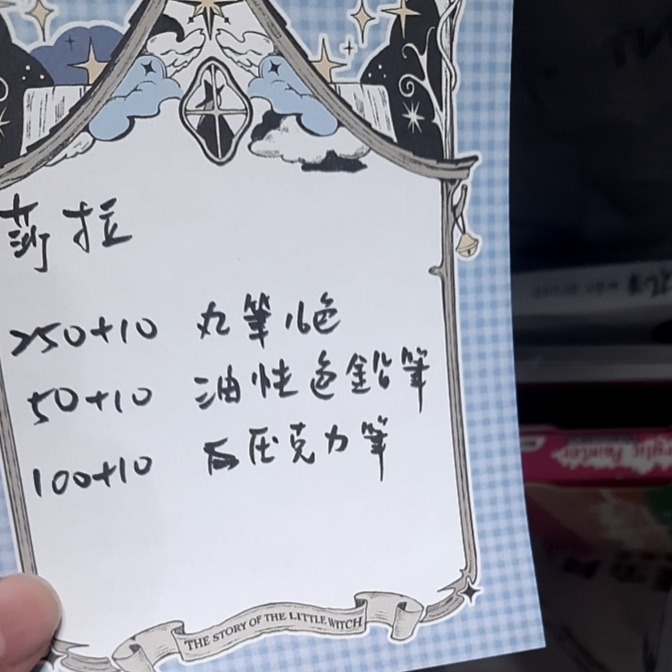 莎拉
250+10 丸筆16色
50+10 油性色鉛筆
100+10 压克力筆
THE STORY OF THE LITTLE WITCH